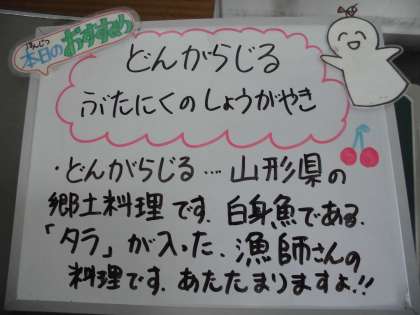 本日のおすすめ
どんがらじる
ぶたにくのしょうがやき
・どんがらじる…山形県の
郷土料理です。白身魚である、
「タラ」が入った、漁師さんの
料理です。あたたまりますよ!!